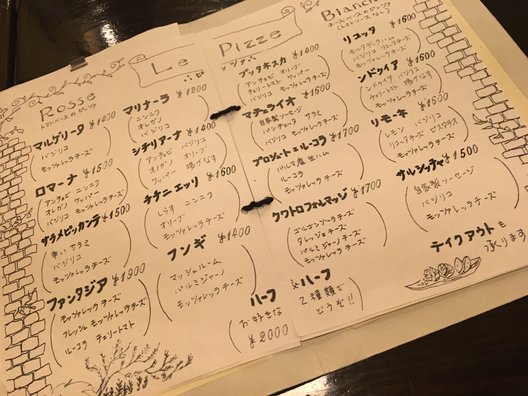 Le Pizze
Rosse
トマトベースのピッツァ
マルゲリータ ¥1400
バジリコ
モッツァレッラチーズ
ロマーナ ¥1500
アンチョビ ニンニク
オレガノ バジリコ
モッツァレッラチーズ
サラメピッカンテ ¥1500
辛いサラミ
バジリコ
モッツァレッラチーズ
ファンタジア ¥1900
モッツァレッラチーズ
フレッシュモッツァレッラチーズ
ルーコラ チェリートマト
マリナーラ ¥1200
ニンニク
オレガノ
バジリコ
シチリアーナ ¥1400
アンチョビ バジリコ
オレガノ オリーブ
ケッパー 揚げなす
チチニエッリ ¥1600
しらす ニンニク
オリーブ
モッツァレッラチーズ
フンギ ¥1400
マッシュルーム
パルミジャーノ
モッツァレッラチーズ
プッタネスカ ¥1400
アンチョビ オリーブ
チェリートマト ケッパー
バジリコ モッツァレッラチーズ
マチェライオ ¥1600
自家製ソーセージ
パンチェッタ サラミ
バジリコ モッツァレッラチーズ
プロシュート・エ・ルーコラ ¥1700
パルマ産生ハム
ルーコラ
モッツァレッラチーズ
クワトロフォルマッジ ¥1700
ゴルゴンゾーラチーズ
タレッジョチーズ
パルミジャーノチーズ
モッツァレッラチーズ
Bianche
チーズベースのピッツァ
(トマトソースなし)
リコッタ ¥1600
バジリコ リコッタチーズ
モッツァレッラチーズ
インドライア ¥1600
チェリートマト 揚げなす
モッツァレッラチーズ
リモーネ ¥1600
レモン バジリコ
リコッタチーズ ピスタチオ
モッツァレッラチーズ
サルシッチャ ¥1500
自家製ソーセージ
バジリコ
モッツァレッラチーズ
ハーフ&ハーフ
お好きな 2種類で
¥2000 どうぞ!!
テイクアウトも
承ります